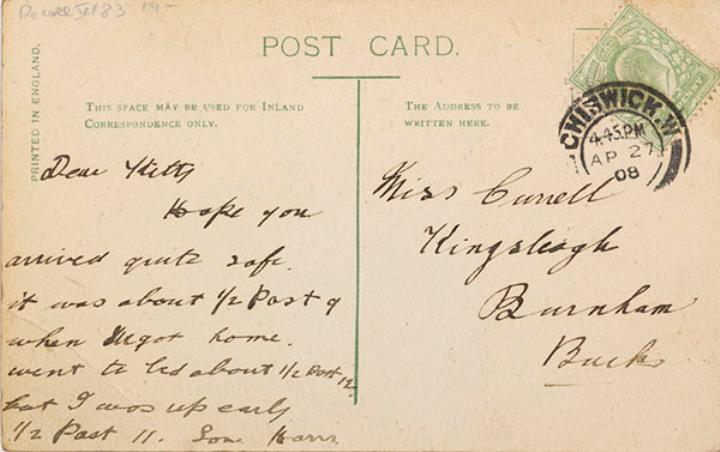 POST CARD.
PRINTED IN ENGLAND.
THIS SPACE MAY BE USED FOR INLAND
CORRESPONDENCE ONLY.
THE ADDRESS TO BE
WRITTEN HERE.
CHISWICK.W
4.45.PM
AP 27
08
Dear Kitty
Hope you
arrived quite safe.
it was about 1/2 Past 9
when got home.
went to bed about 1/2 Past 12
but I was up early
1/2 Past 11. Love
Miss Currell
Kingsleagh
Burnham
Bucks